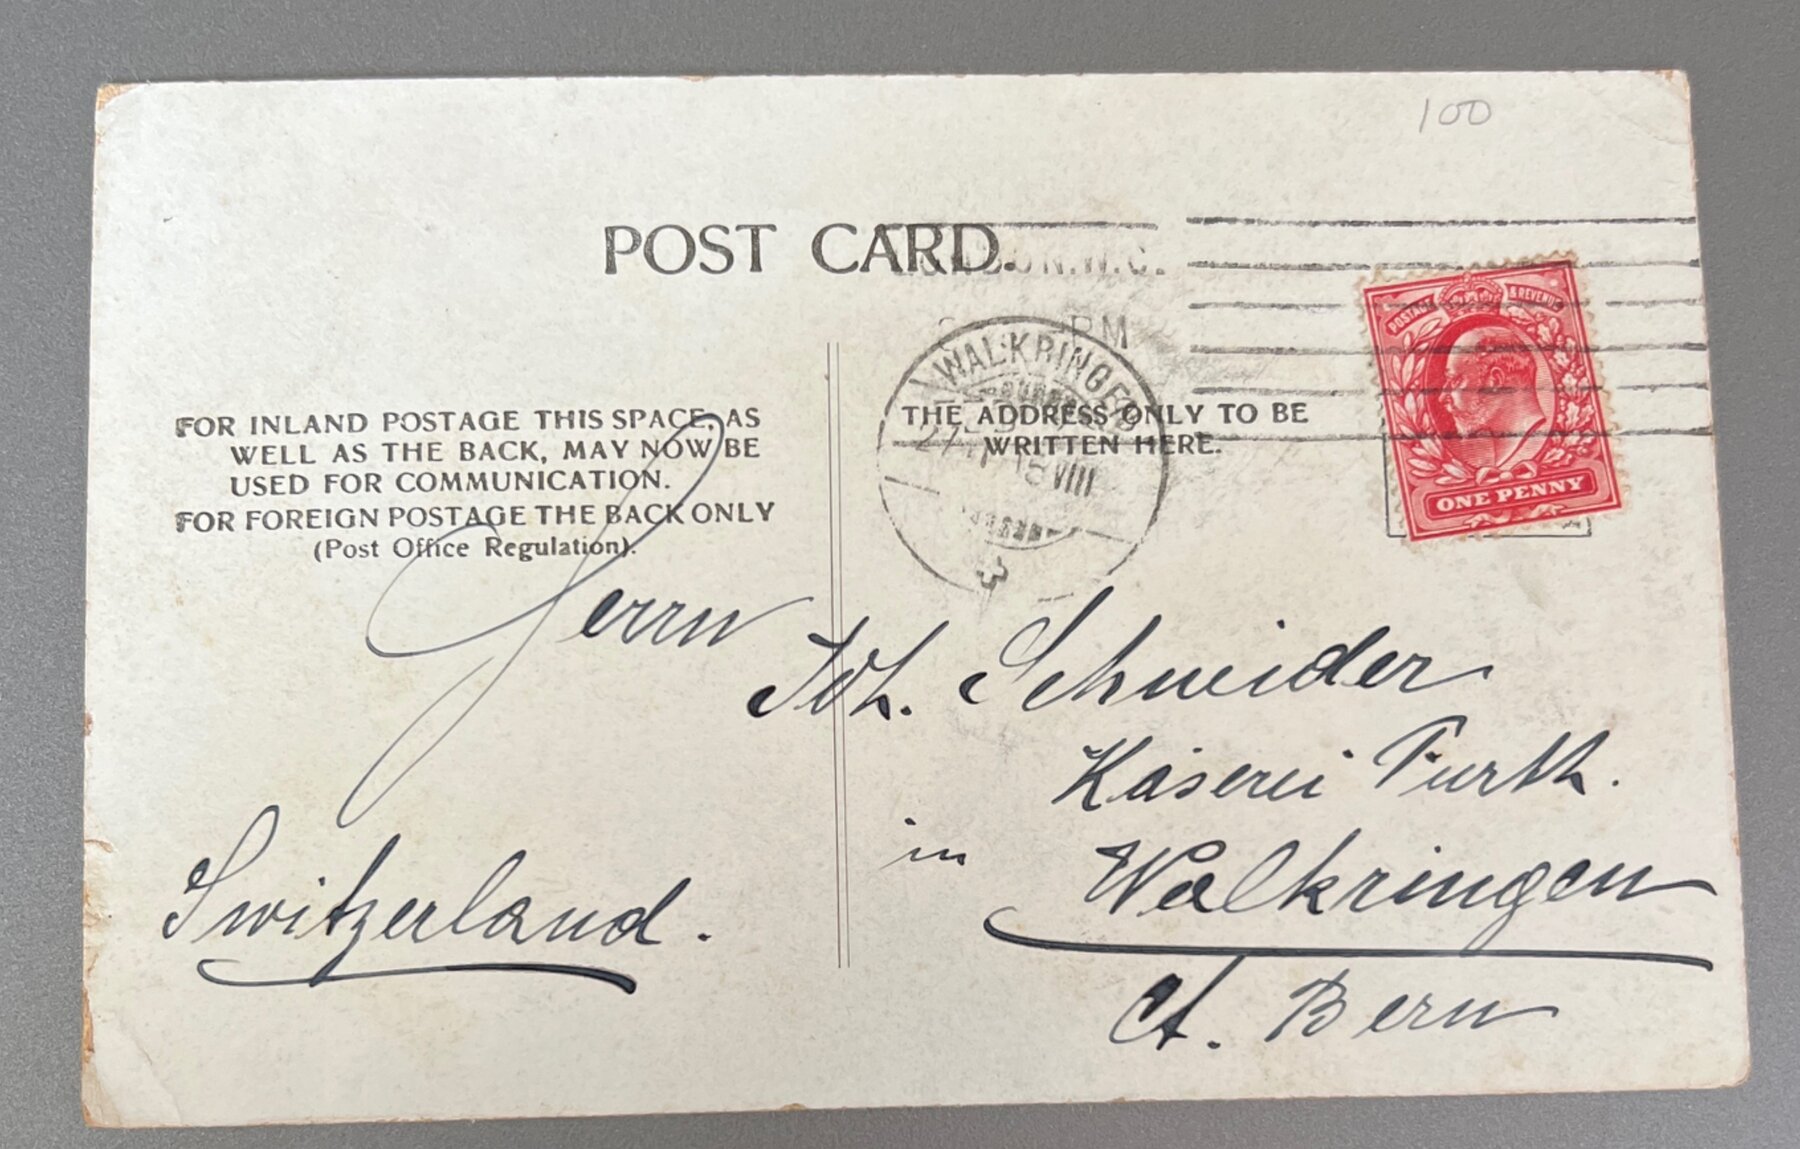 100
POST CARD.
N.W.C.
PM
WALKRINGEN
VIII
POSTAGE & REVENUE
ONE PENNY
FOR INLAND POSTAGE THIS SPACE, AS
WELL AS THE BACK, MAY NOW BE
USED FOR COMMUNICATION.
FOR FOREIGN POSTAGE THE BACK ONLY
(Post Office Regulation).
THE ADDRESS ONLY TO BE
WRITTEN HERE.
Herrn
Joh. Schneider
Käserei Furth.
in Walkringen
Ct. Bern
Switzerland.